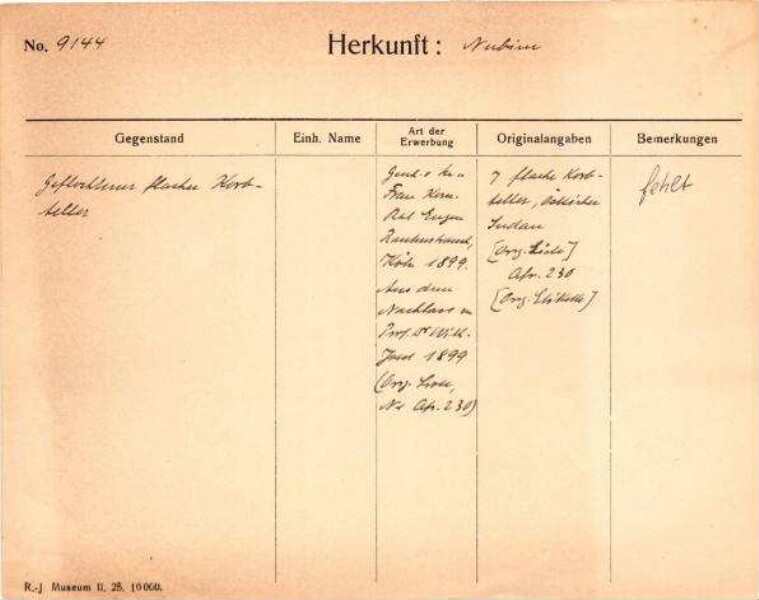 No. 9144
Herkunft: Nubien
Gegenstand
Einh. Name
Art der Erwerbung
Originalangaben
Bemerkungen
Geflochtener flacher Korb-
teller
Frau Kom.
Rat Eugen
Rautenstrauch,
Köln 1899.
Aus dem
Nachlass v.
Prof. Dr Wilh.
Joest 1899
(Org. Liste,
Nr Afr. 230)
7 flache Korb-
teller, östlicher
Sudan
[Org. Liste]
Afr. 230
[Org. Etikette]
fehlt
R.-J Museum II. 25. 10000.